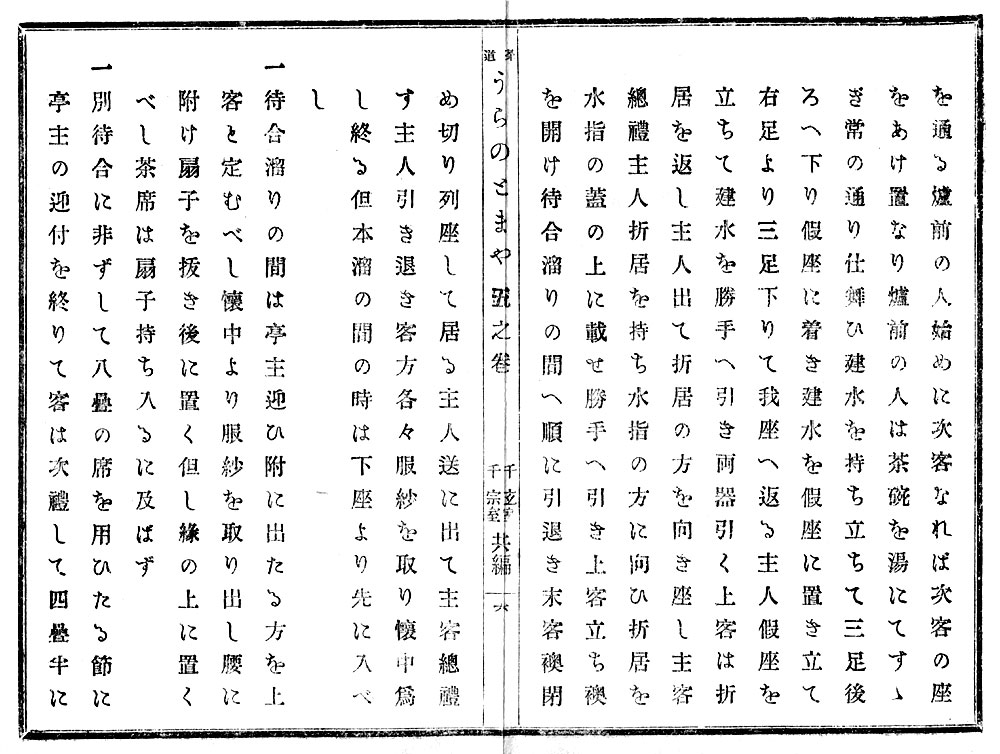 を通る爐前の人始めに次客なれば次客の座
をあけ置なり爐前の人は茶碗を湯にてすゝ
ぎ常の通り仕舞ひ建水を持ち立ちて三足後
ろへ下り假座に着き建水を假座に置き立て
右足より三足下りて我座へ返る主人假座を
立ちて建水を勝手へ引き両器引く上客は折
居を返し主人出て折居の方を向き座し主客
總禮主人折居を持ち水指の方に向ひ折居を
水指の蓋の上に載せ勝手へ引き上客立ち襖
を開け待合溜りの間へ順に引退き末客襖閉
茶道 うらのとまや 五之卷 千玄室 千宗室 共編 六
め切り列座して居る主人送に出て主客總禮
す主人引き退き客方各々服紗を取り懷中爲
し終る但本溜の間の時は下座より先に入べ
し
一待合溜りの間は亭主迎ひ附に出たる方を上
客と定むべし懷中より服紗を取り出し腰に
附け扇子を拔き後に置く但し緣の上に置く
べし茶席は扇子持ち入るに及ばず
一別待合に非ずして八疊の席を用ひたる節に
亭主の迎付を終りて客は次禮して四疊半に